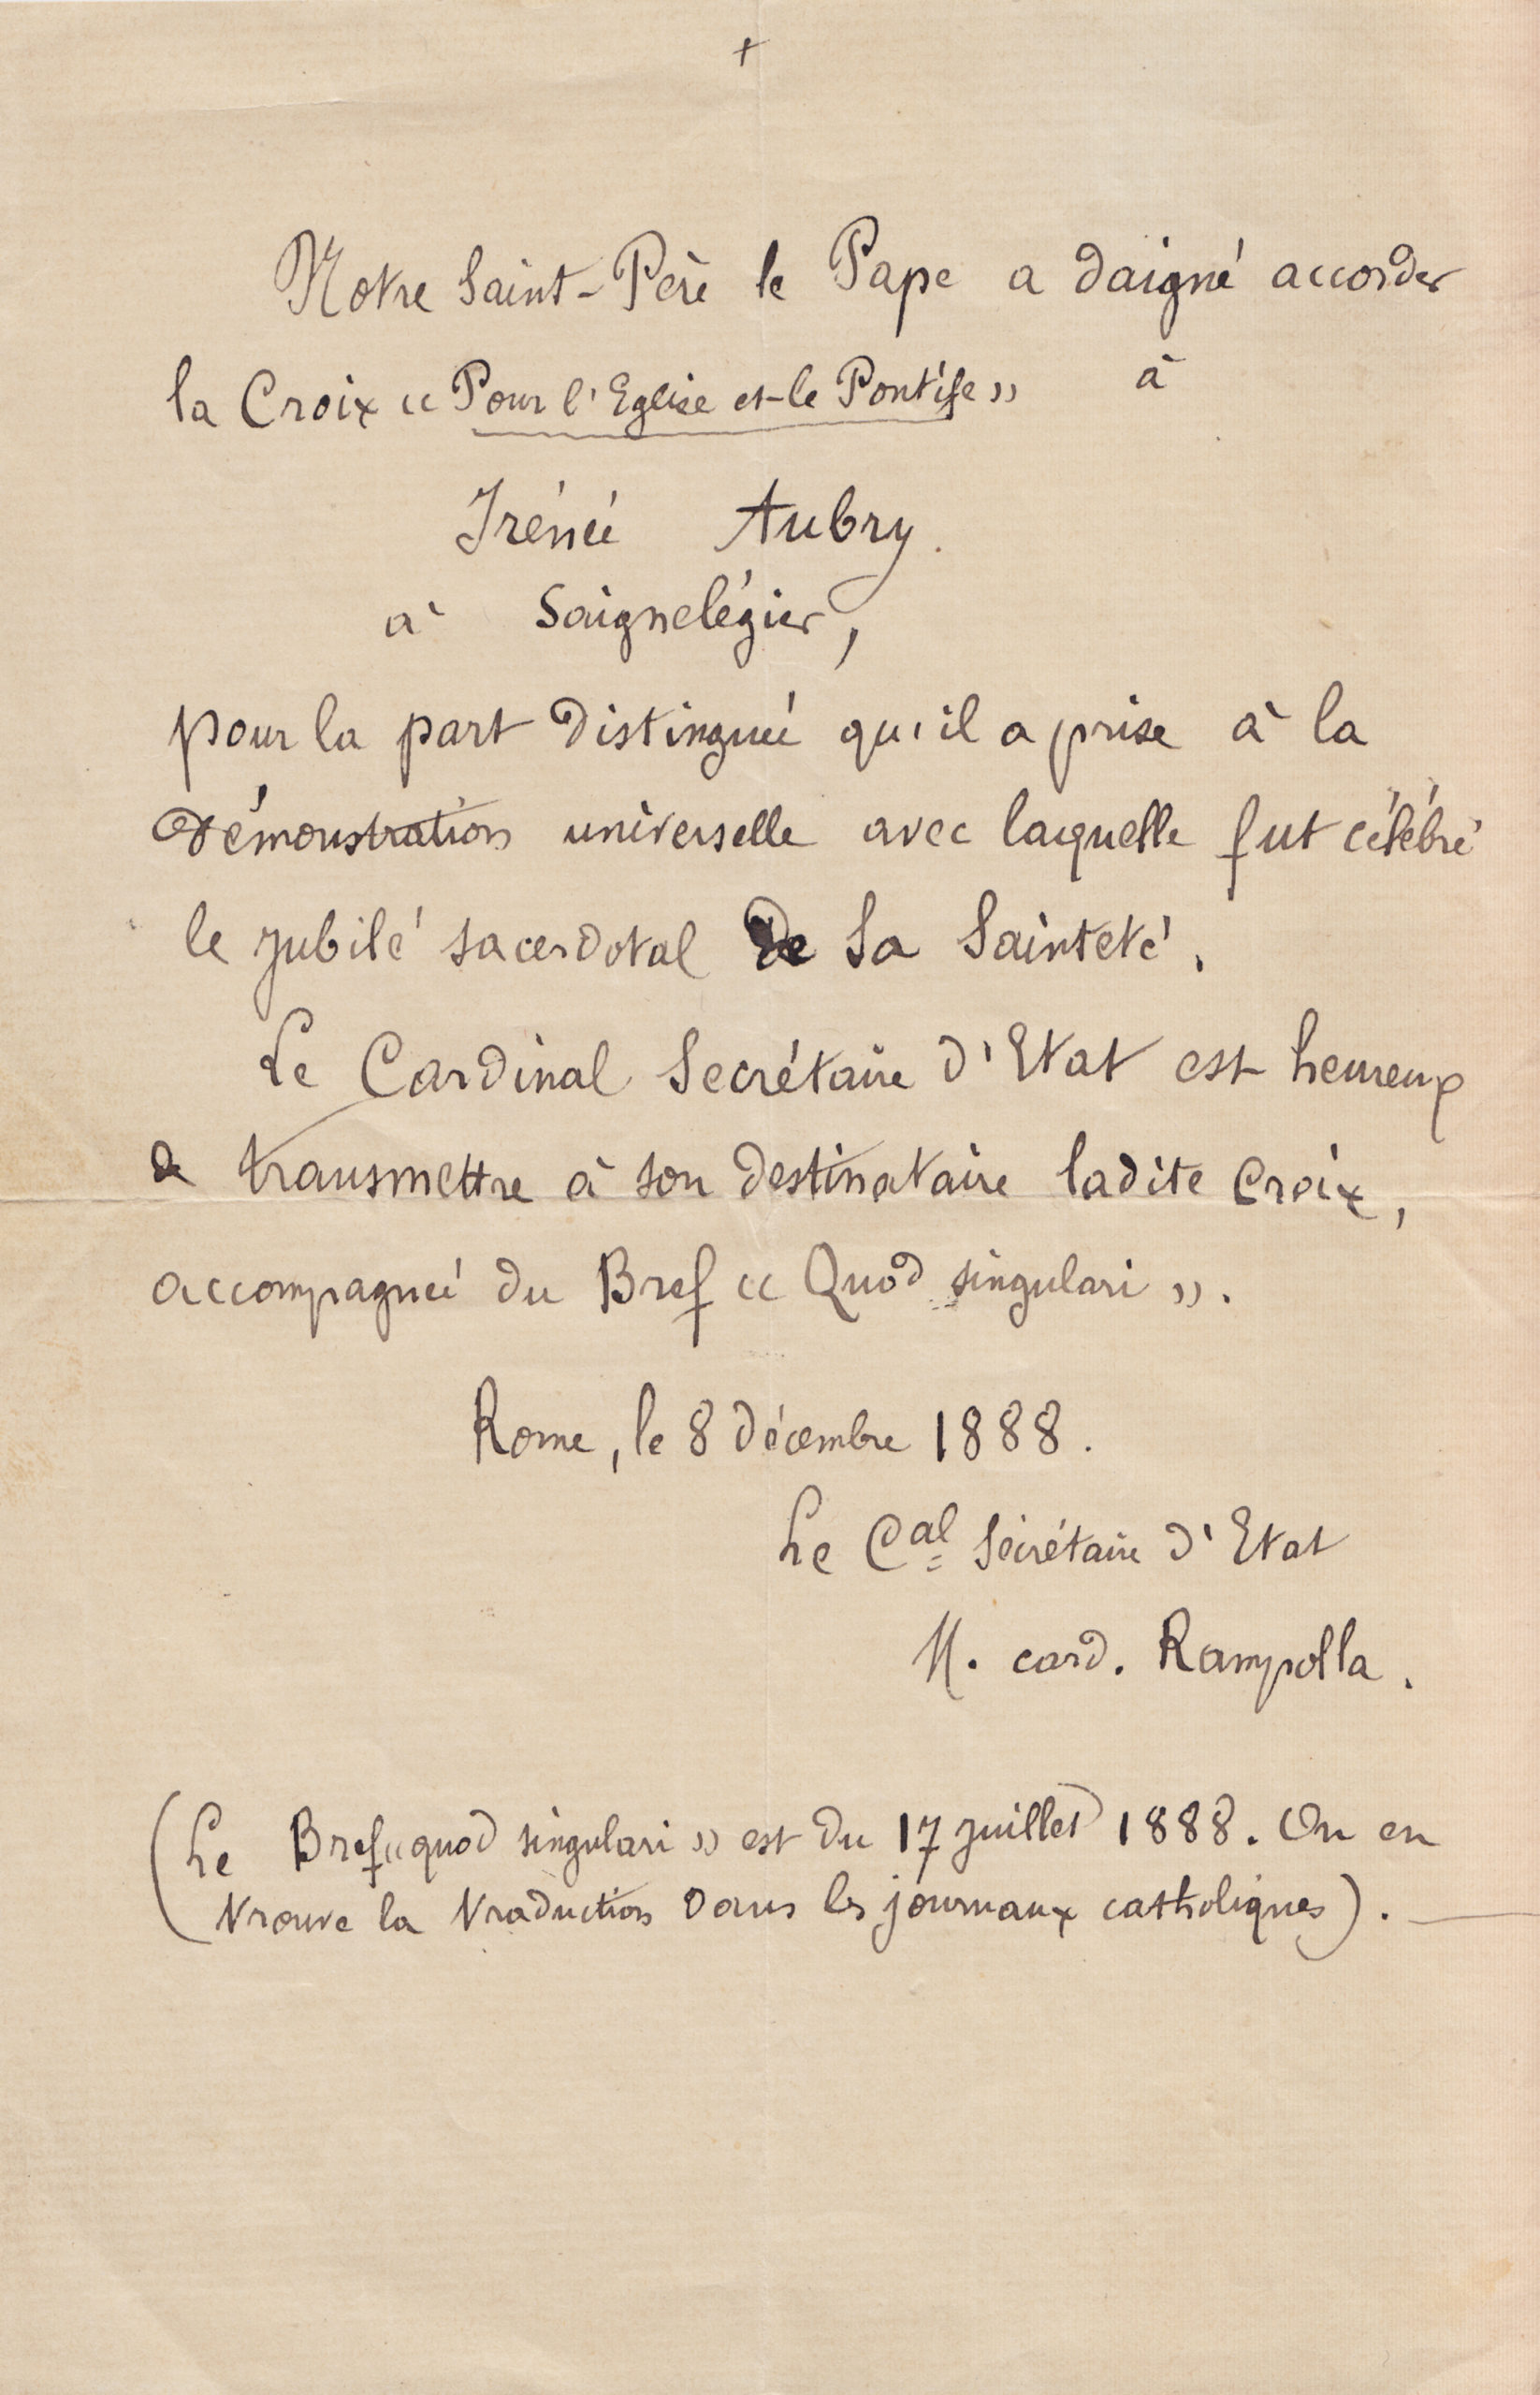 +
Notre Saint-Père le Pape a daigné accorder
la Croix « Pour l'Eglise et le Pontife » à
Irénée Aubry.
à Saignelégier,
pour la part distinguée qu'il a prise à la
démonstration universelle avec laquelle fut célébré
le jubilé sacerdotal de Sa Sainteté.
Le Cardinal Secrétaire d'Etat est heureux
de transmettre à son destinataire ladite Croix,
accompagnée du Bref « Quod singulari ».
Rome, le 8 décembre 1888.
Le Cal Secrétaire d'Etat
M. card. Rampolla.
(Le Bref « quod singulari » est du 17 juillet 1888. On en
trouve la traduction dans les journaux catholiques). —